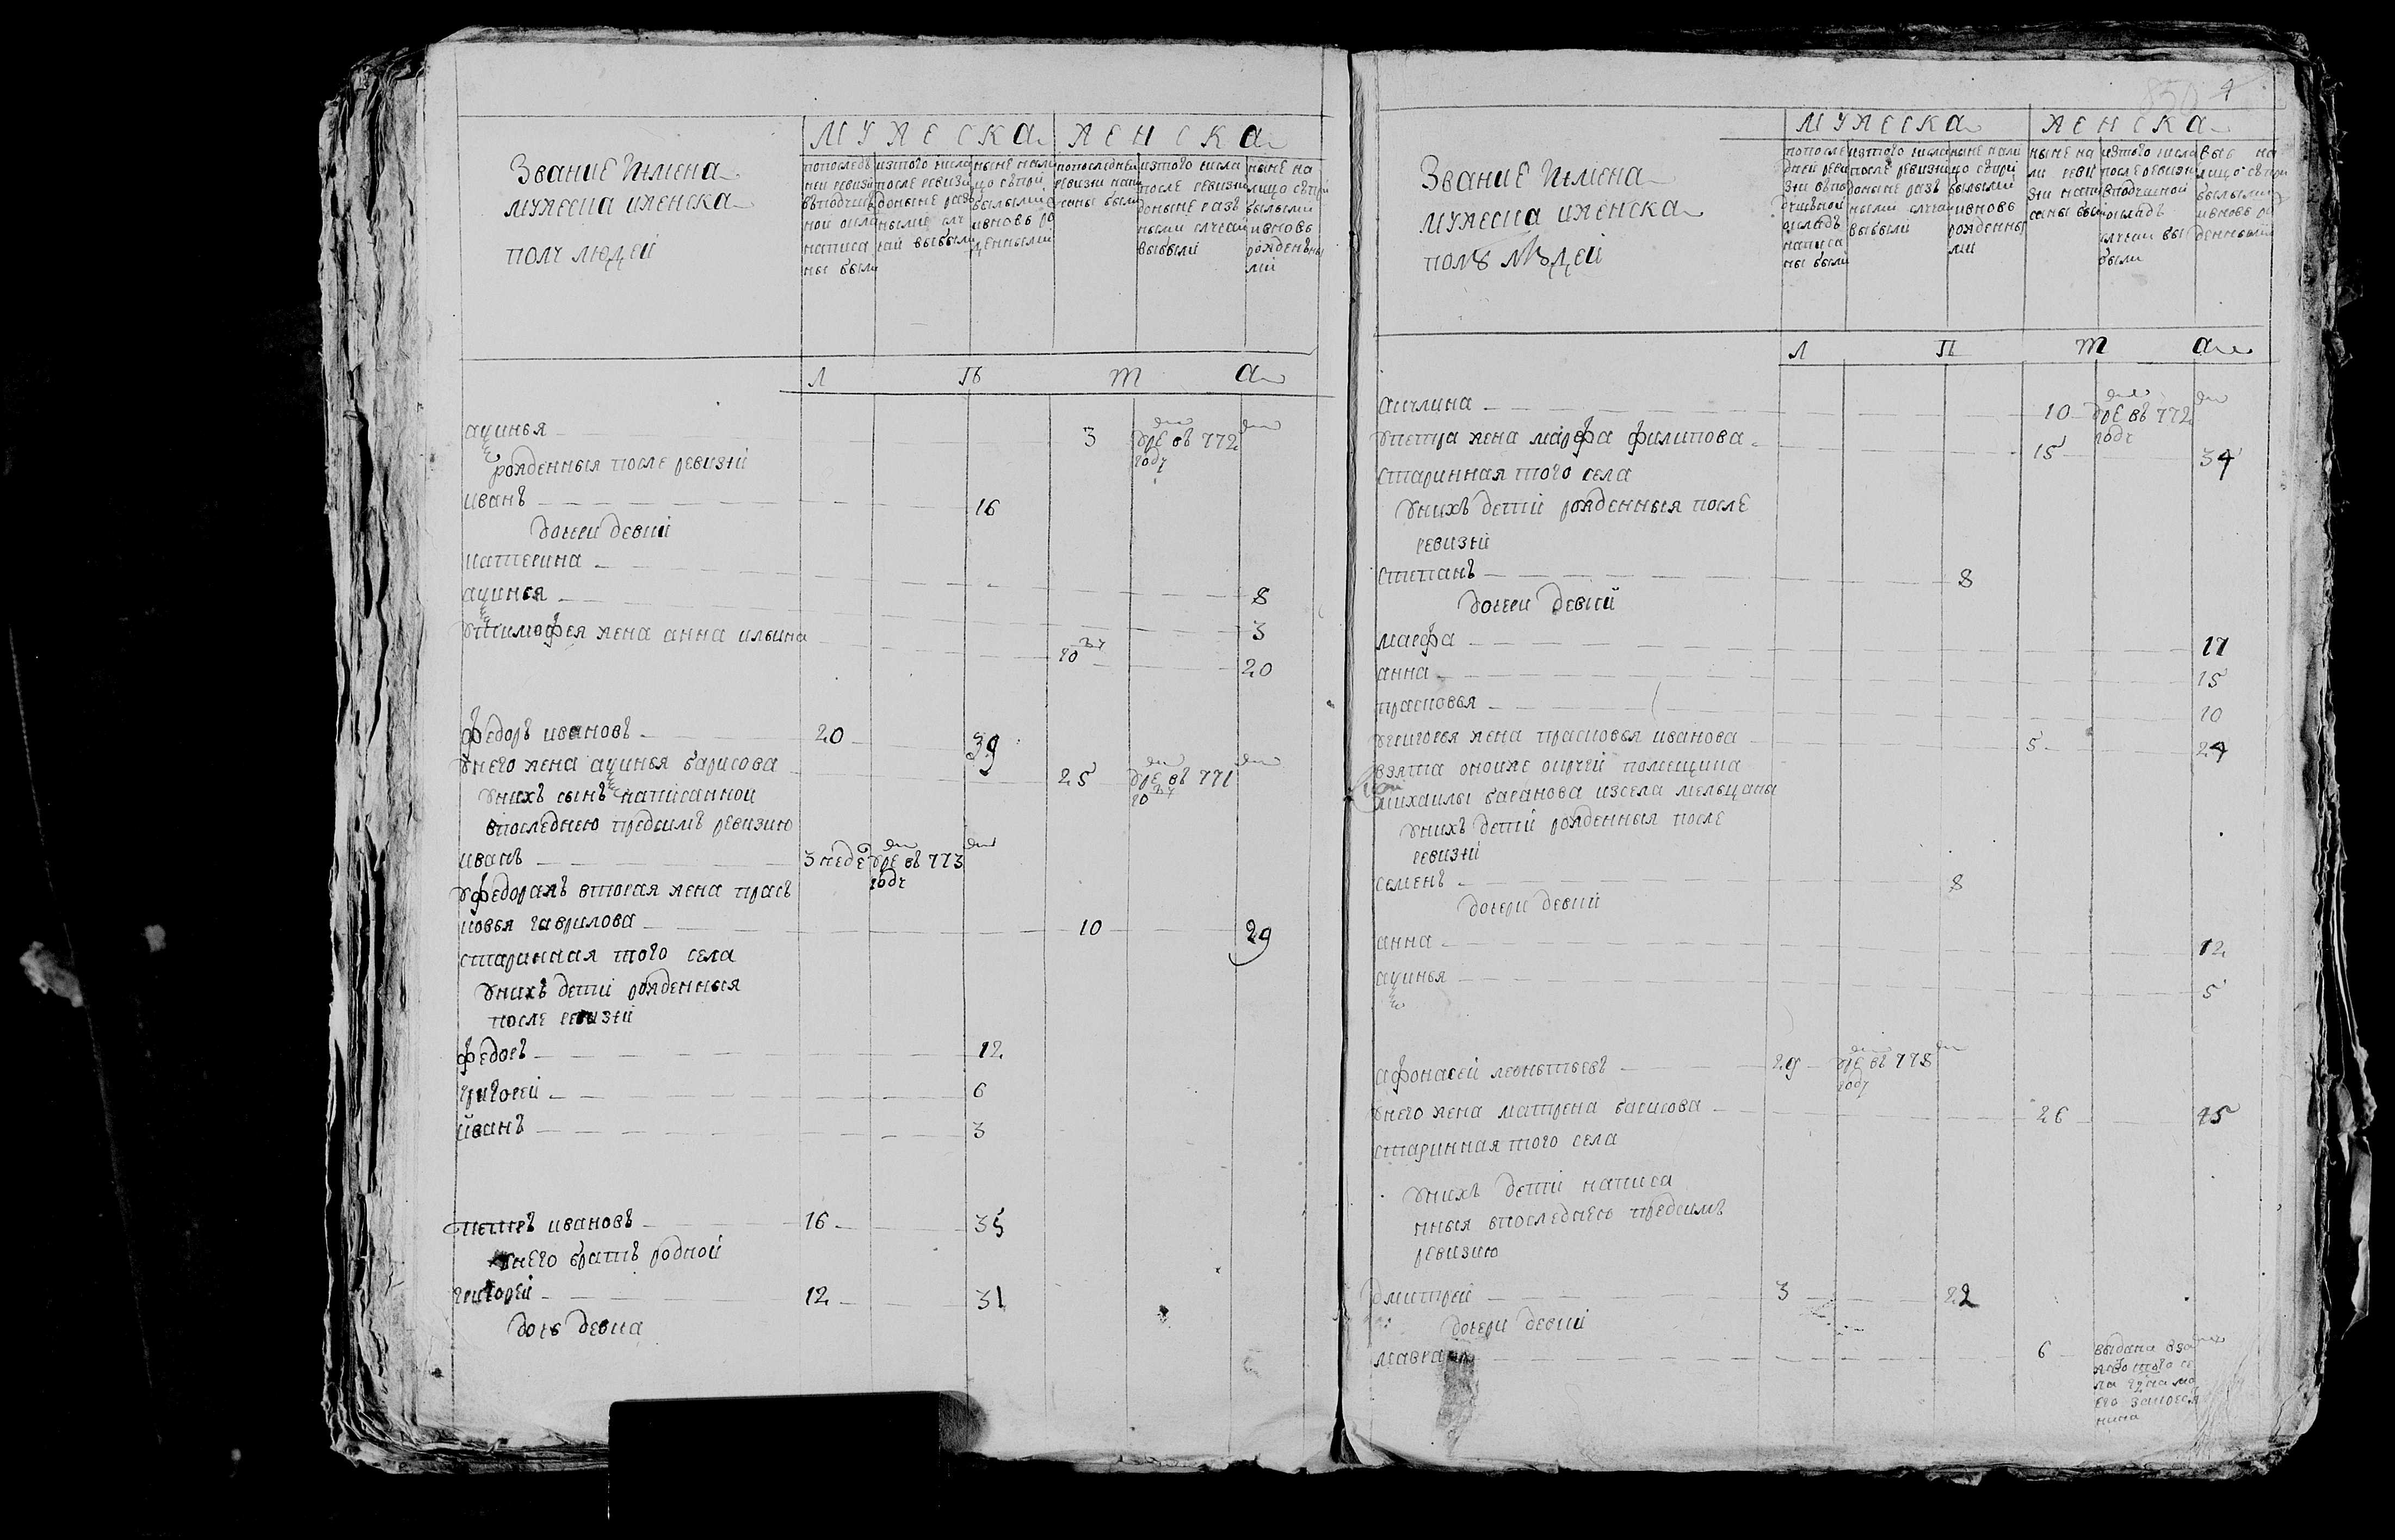 Звание Имена
мужеска иженска
полу людей
мужеска
женска
попоследъ
ней ревизи
вподуш
ной окла
написа
ны были
изтого числа
после ревизи
доныне раз
ными слу
чаи выбыли
ныне нали
цо съпри
былыми
ивновь ро
жденными
попоследнеи
ревизи напи
саны были
изтого числа
после ревизи
доныне разъ
ными случаи
выбыли
ныне на
лицо съпри
былыми
ивновь
рожденъны
ми
л ѣ т а
аѯинья 3 умре въ 772
году
рожденныя после ревизии
иванъ 16
дочери девки
катерина
аѯинья 8
утимофея жена анна ильина 3
20
федоръ ивановъ 20 39
унего жена аѯинья барисова 25 умре въ 771
году
унихъ сынъ написанной
впоследнею предсимъ ревизию
иванъ 3 неде умре въ 773
году
уфедоражъ вторая жена прась
ковья гаврилова 10 29
старинная того села
унихъ дети рожденныя
после ревизии
федоръ 12
григорей 6
иванъ 3
петръ ивановъ 16 35
унего братъ родной
григорей 12 31
дочь девка
4
Звание Имена
мужеска иженска
полу людей
мужеска
женска
попосле
дней реви
зи въпо
душъной
окладъ
написа
ны были
изтого числа
после ревизи
доныне разъ
ными случаи
выбыли
ныне нали
цо съпри
былыми
ивновь
рожденны
ми
ныне на
ли реви
зи напи
саны были
изтого числа
после ревизи
вподушной
окладъ
случаи вы
были
лицо съпри
былыми
ивновь ро
жденными
л ѣ т а
акулина 10 умре въ 772
году
упетра жена марфа филипова 15 34
старинная того села
унихъ детй рожденныя после
ревизии
степанъ 8
дочери девки
марфа 17
анна 15
прасковья 10
угригорья жена прасковья иванова 5 24
взята оноиже округи помещика
михаилы баранова изсела мельцаны
унихъ детй рожденныя после
ревизии
семенъ 8
дочери девки
анна 12
аѯинья 5
афонасей леонътьевъ 29 умре въ 778
году
унего жена матрена барисова 26 45
старинная того села
унихъ дети написа
нныя впоследнею предсимъ
ревизию
дмитрей 3 22
дочери девки
мавра 6 выдана вза
мужъ того се
ла
нина